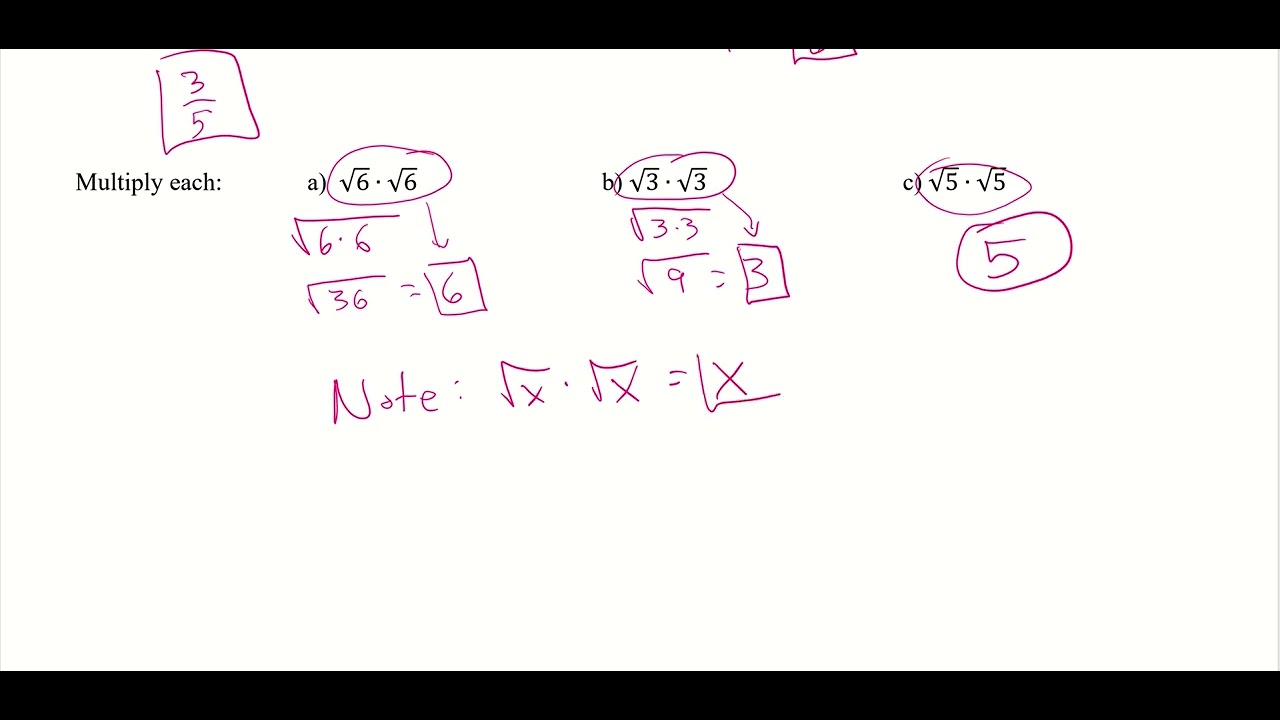 3/5
Multiply each: a) √6 · √6 b) √3 · √3 c) √5 · √5
√6·6 √3·3 5
√36 = 6 √9 = 3
Note: √x · √x = x